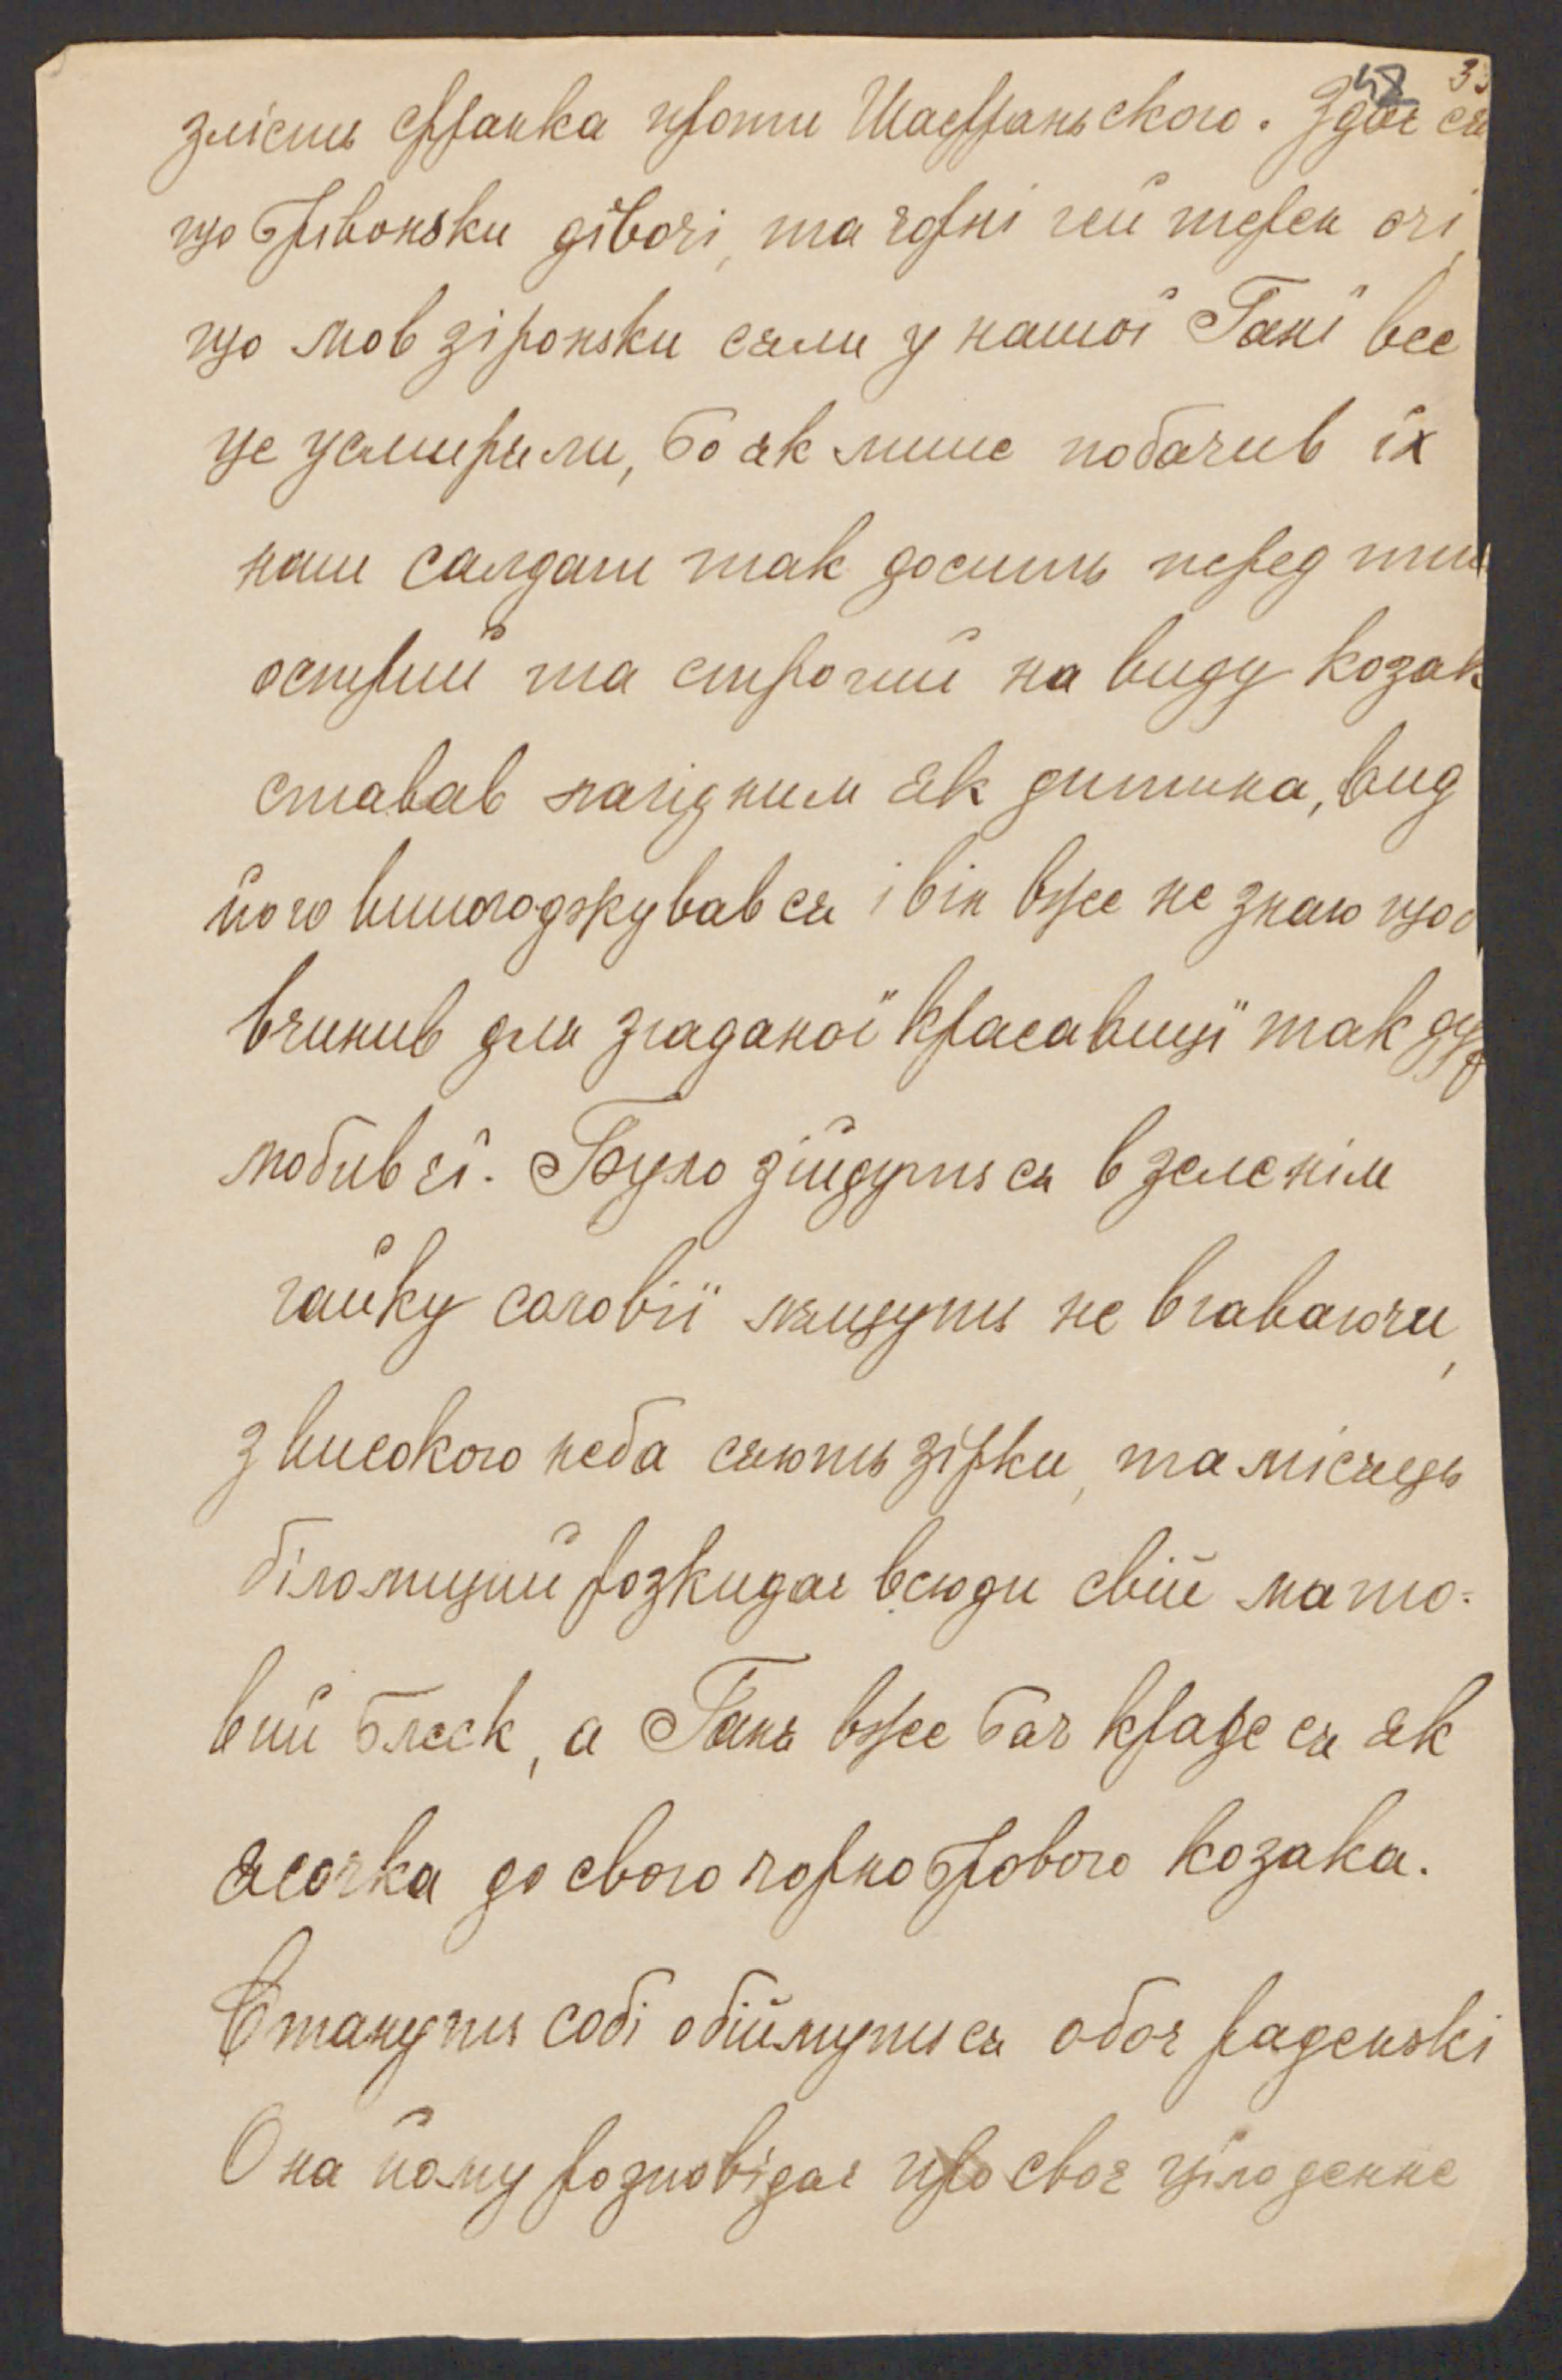 48 33
злість Франка проти Шафраньского. Здає ся
що брівоньки дївочі, та чорні гей терен очі,
що мов зіроньки сяли у нашої Ганї все
це усмиряли, бо як лише побачив їх
наш салдат так досить перед тим
острий та строгий на виду козак
ставав лагідним як дитина, вид
його вилогоджував ся і він вже не знаю що
вчинив для згаданої красавицї так ду
любив єї. Було зійдуть ся в зеленім
гайку соловії лящуть не вгаваючи,
з високого неба сяють зірки, та місяць
біломиций розкидає всюди свій мато-
вий блеск, а Ганя вже бач краде ся як
ясочка до свого чорнобрового козака.
Стануть собі обіймуть ся обоє раденькі
Она йому розповідає про своє цїлоденне